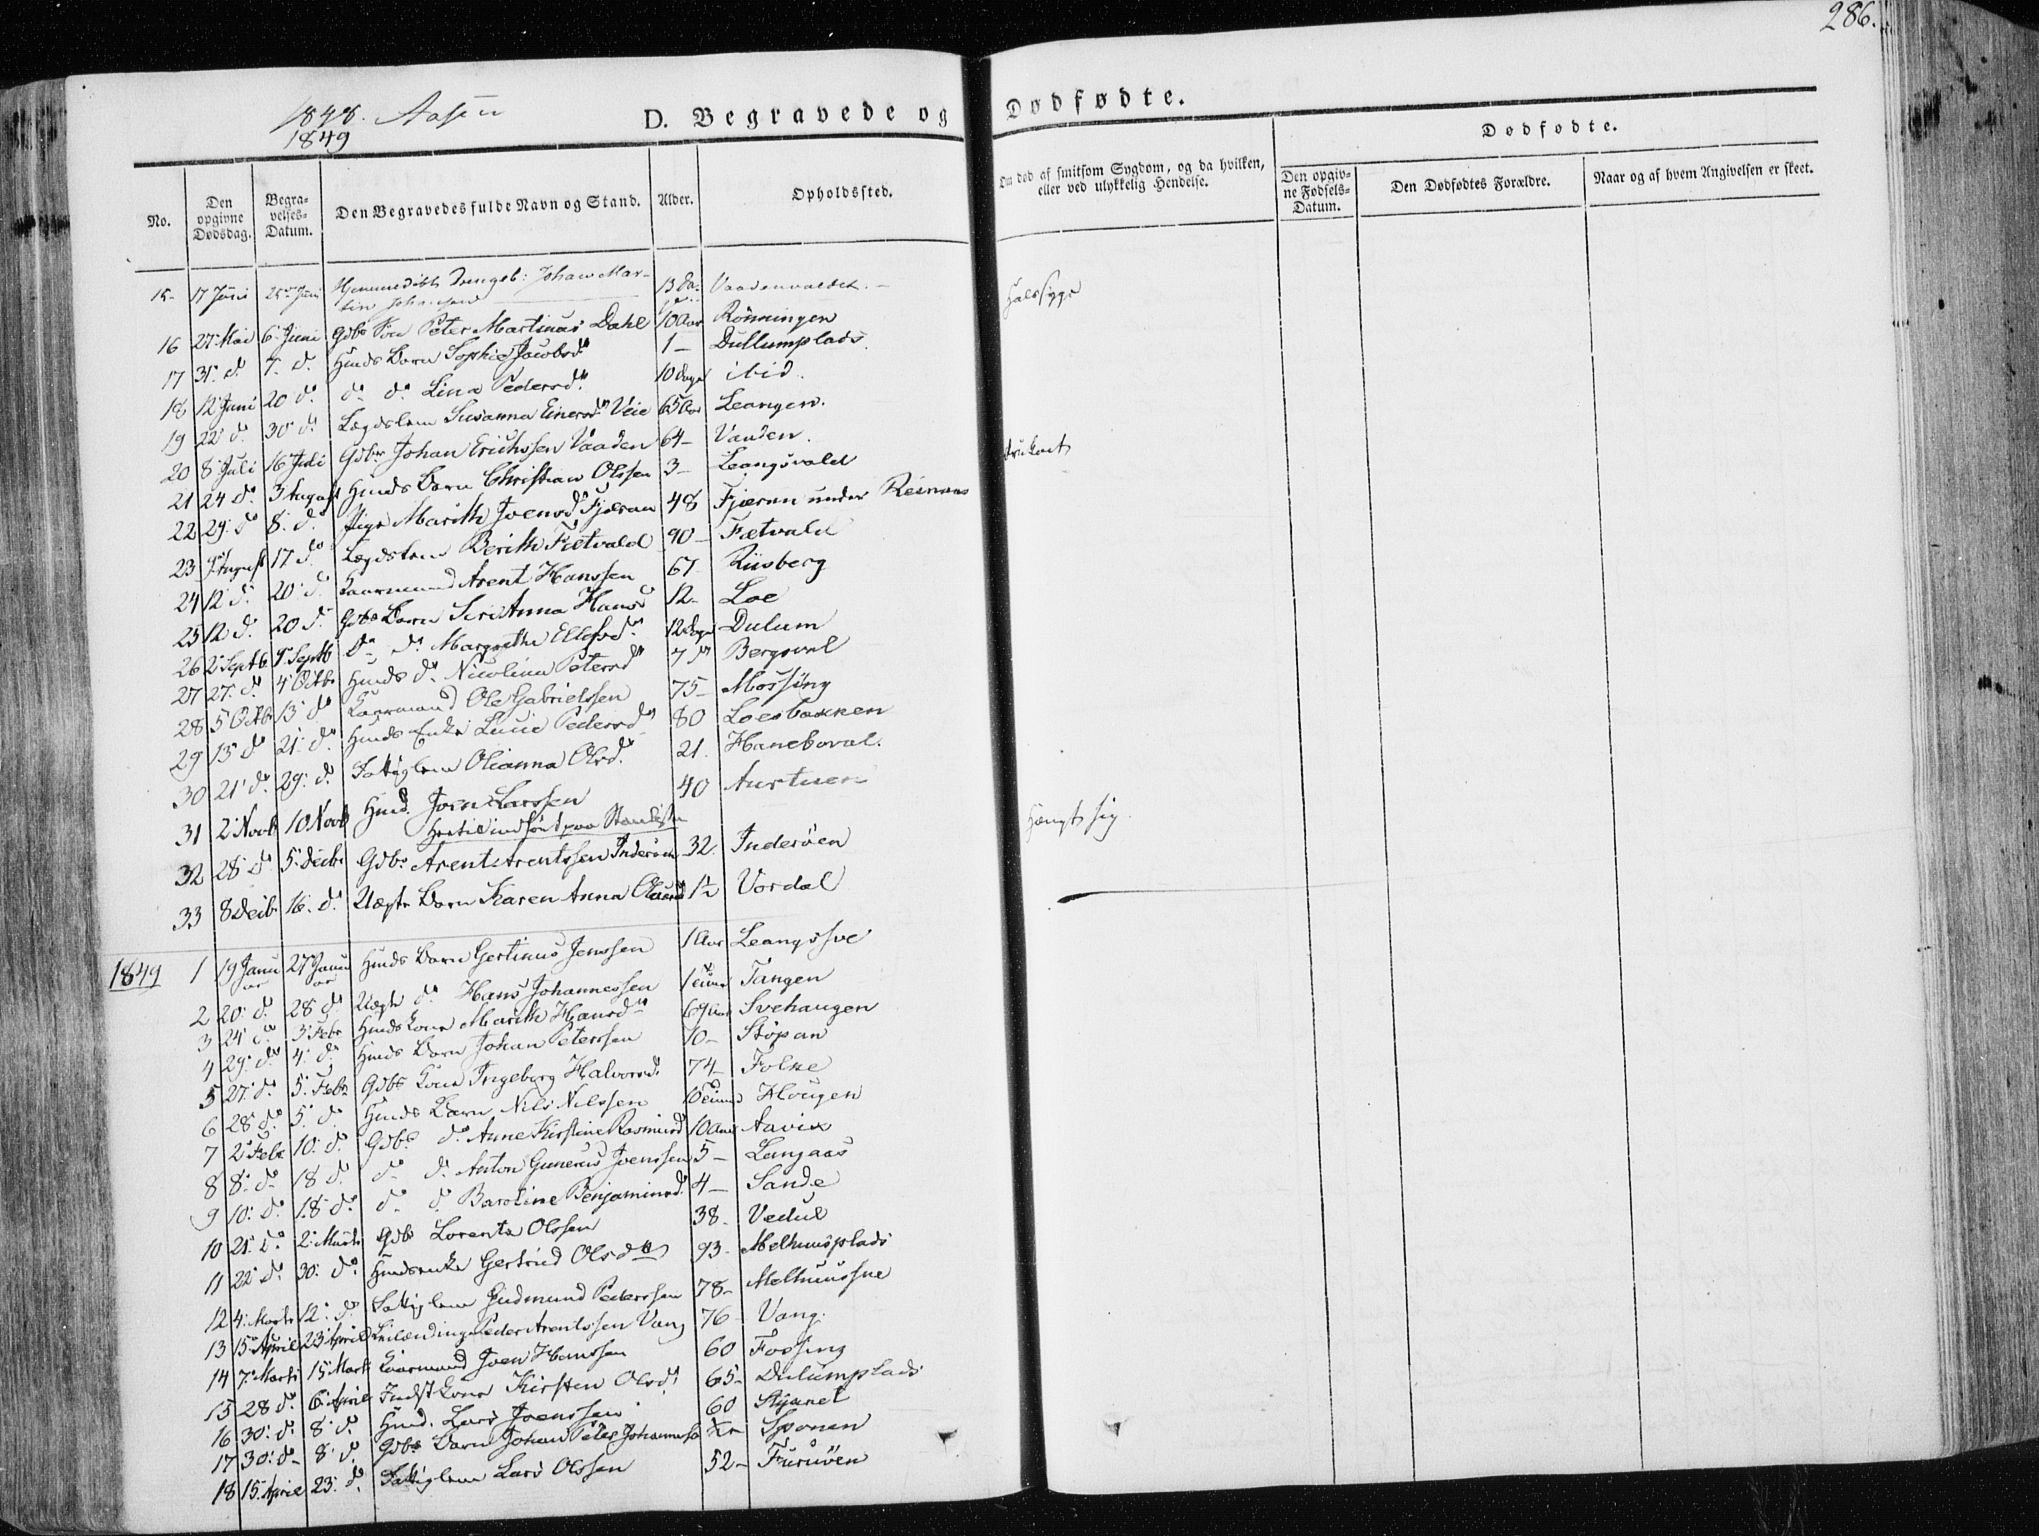 286.
1848. Aasen
1849
D. Begravede og Dødfødte.
Dødfødte.
No.
Den opgivne Dødsdag.
Begravelses-Datum.
Den Begravedes fulde Navn og Stand.
Alder.
Opholdssted.
Om død af smitsom Sygdom, og da hvilken, eller ved ulykkelig Hendelse.
Den opgivne Fødsels-Datum.
Den Dødfødtes Forældre.
Naar og af hvem Angivelsen er skeet.
15- 17 Juni 25 Juni Johan Martin Johansen 13 Da. Halssyge
16 27 Mai 6 Juni Gdbs Søn Peter Martinus Dahl 10 Aar Rönningen
17 31 d. 7 d. Huusds Barn Sophie Jacobsd. 1- Dullumplads
18 12 Juni 20 d. d. d. Lina Pedersd. 10 Dage ibid.
19 22 d. 30 d. Lægdslem Susanna Einersd. Veie 65 Aar Leangen.
20 8 Juli 16 Juli Gdbr Johan Erichssen Vaaden 64- Vauden. druknet
21 24 d. 3 August Huusds Barn Christian Olssen 3- Leangsvald
22 29 d. 8 d. Pige Marith Joensd. Fjæran 48 Fjæran under Reinaas
23 August 17 d. Lægdslem Berith Fætvald 90- Fætvald
24 12 d. 20 d. Kaarmand Arent Hanssen 67 Riisberg
25 12 d. 20 d. Gdbs Barn Anna Hansd 12- Loe
26 2 Septb. 9 Septb d. d. Margrethe Ellefsd. 12 Dage Dulum
27 27 d. 4 Octbr Huusds d. Nicolina Petersd 7 Bergsval
28 5 Octb 13 d. Kaarmand Ole Gabrielssen 75- Mossing
29 13 d. 21 d. Huusds Enke Lucie Pedersd 80 Loesbakken
30 21 d. 29 d. Fattiglem Olianna Olsd. 21. Haneboval.
31 2 Novb 10 Novb Huusd. Joen Larssen 40 Aurtuen Hængt sig.
Hertil indført paa
32 28 d. 5 Decbr Gdbr Arent Arentssen Inderöen 32. Inderöen
33 8 Decb. 16 d. Uægte Barn Karen Anna 1½ Vordal
1849 1 19 Januar 27 Januar Huusds Barn Gertinus Jenssen 1 Aar Leangssve
2 20 d. 28 d. Uægte d. Hans Johannessen 1 Tangen
3 24 d. 3 Febr Huusds Kone Marith Hansd. 69 Aar Svehaugen
4 29 d. 4 d. Huusds Barn Johan Peterssen 10- Stöpan
5 27 d. 5 Febr Gdbs Kone Ingeborg Halvorsd. 74- Folke
6 28 d. 5 d. Huusds Barn Nils Nilssen 10 Hougen
7 2 Febr 10 d. Gdbs d. Anne Kirstine Rasmusd 10 Aar Aavik
8 8 d. 18 d. d. d. Anton Gunerus Joenssen 5- Langaas
9 10 d. 18 d. d. d. Baroline Benjaminsd. 4- Sande
10 21 d. 2 Marts Gdbr Lorents Olssen 38- Vedul
11 22 d. 30 d. Huusdsenke Gertrud Olsd 93- Melhuusplads
12 4 Marts 12 d. Fattiglem Gudmund Pederssen 78- Melhuussve
13 15 April 23 April Leilænding Peder Arentssen Vang 76- Vang.
14 7 Marts 15 Marts Kaarmand Joen Hanssen 60 Fossing
15 28 d. 6 April Indst Kone Kirsten Olsd. 65- Dulumplads
16 30 d. 8 d. Huusd. Lars Joenssen 60
17 30 d. 8 d. Gdbs Barn Johan Peter Sponen
18 15 April 23 d. Fattiglem Lars Olssen 52- Furuöen